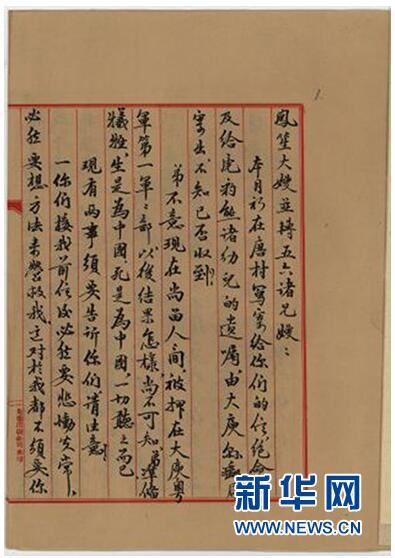 鳳笙大嫂並轉五六諸兄嫂：
本月初在唐村寫寄給你們的信、絕命
及給虎豹熊諸幼兒的遺囑，由大庾縣郵局
寄出，不知已否收到？
弟不意現在尚留人間，被押在大庾粵
軍第一軍々部，以後結果怎樣，尚不可知，弟準備
犧牲，生是為中國，死是為中國，一切聽之而已。
現有兩事須要告訴你們，請注意！
一、你們接我前信後必然要悲慟失常，
必然要想方法來營救我，這對於我都不須要，你
新华网
WWW.NEWS.CN